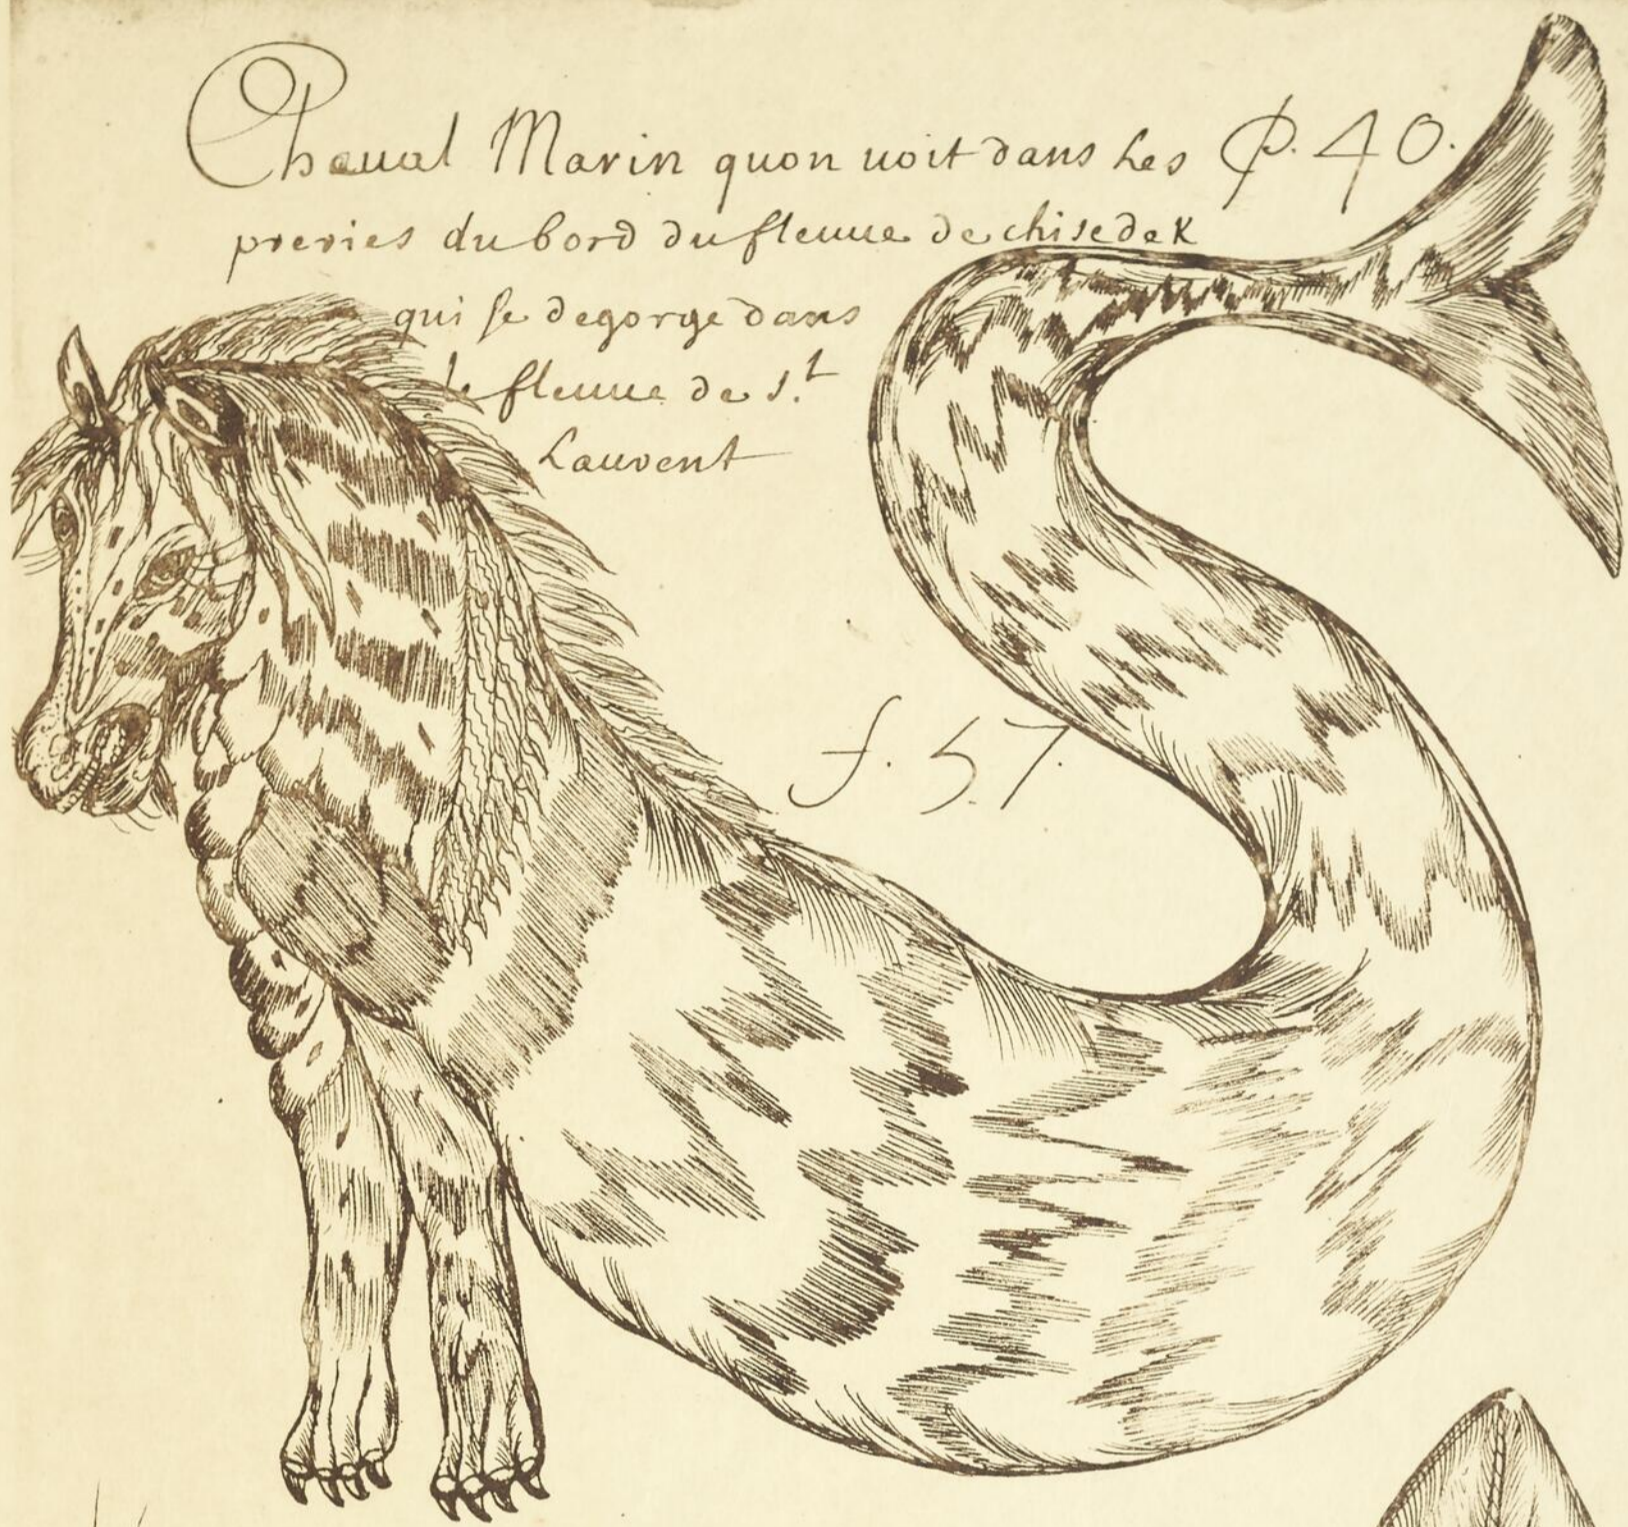 Chaual Marin quon uoit dans Les P. 40.
preries du bord du fleuue de chisedek
qui se degorge dans
le fleuue de s.t
Laurent
f. 57.